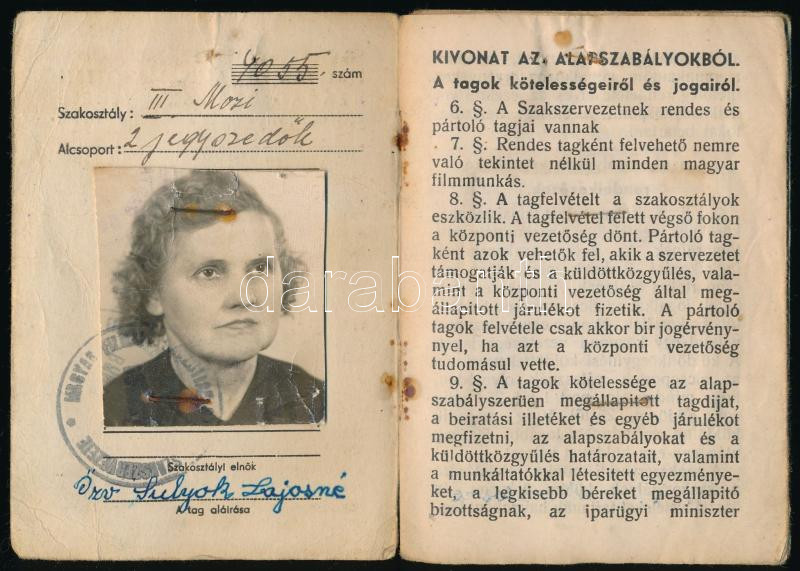 4055. szám
Szakosztály: III Mozi
Alcsoport: 2 jegyszedők
MAGYAR
Szakosztályi elnök
Özv Sulyok Lajosné
A tag aláirása
KIVONAT AZ ALAPSZABÁLYOKBÓL.
A tagok kötelességeiről és jogairól.
6. §. A Szakszervezetnek rendes és
pártoló tagjai vannak
7. §. Rendes tagként felvehető nemre
való tekintet nélkül minden magyar
filmmunkás.
8. §. A tagfelvételt a szakosztályok
eszközlik. A tagfelvétel felett végső fokon
a központi vezetőség dönt. Pártoló tag-
ként azok vehetők fel, akik a szervezetet
támogatják és a küldöttközgyűlés, vala-
mint a központi vezetőség által meg-
állapitott járulékot fizetik. A pártoló
tagok felvétele csak akkor bir jogérvény-
nyel, ha azt a központi vezetőség
tudomásul vette.
9. §. A tagok kötelessége az alap-
szabályszerüen megállapitott tagdijat,
a beiratási illetéket és egyéb járulékot
megfizetni, az alapszabályokat és a
küldöttközgyűlés határozatait, valamint
a munkáltatókkal létesitett egyezménye-
ket, a legkisebb béreket megállapitó
bizottságnak, az iparügyi miniszter
darabanth